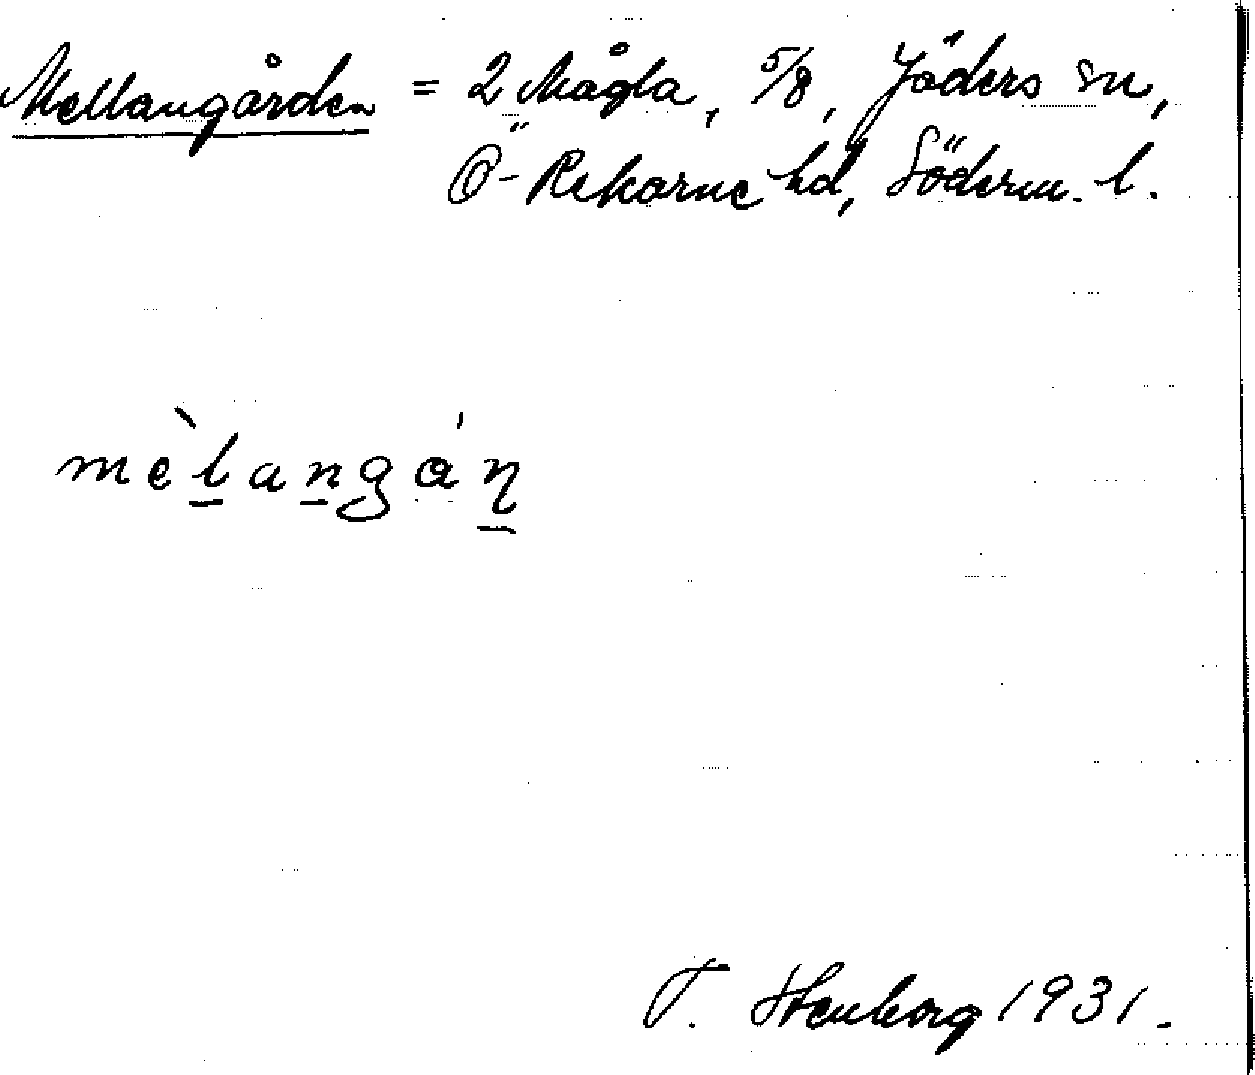 Mellangården = 2 Mågla, 5/8, Jäders sn,
Ö-Rekarne hd, Söderm. l.
mèlangán
T. Stenborg 1931.